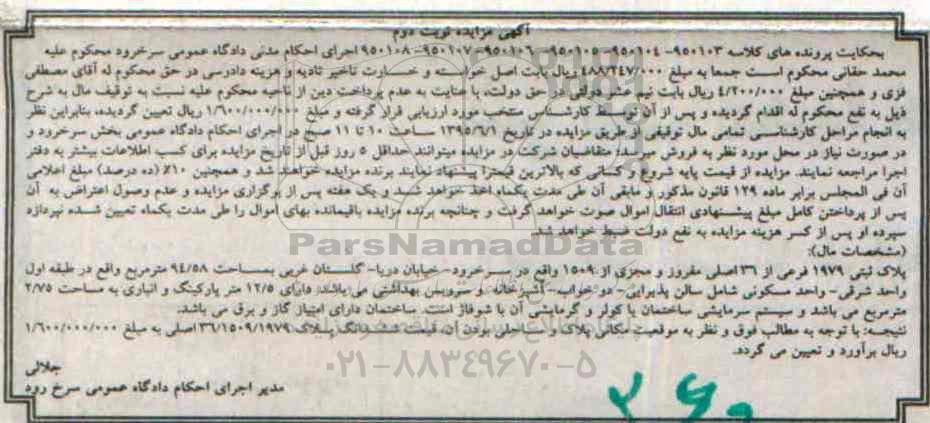 آگهی مزایده نوبت دوم
بحکایت پرونده های کلاسه ۹۵۰۱۰۳- ۹۵۰۱۰۴- ۹۵۰۱۰۵- ۹۵۰۱۰۶- ۹۵۰۱۰۷- ۹۵۰۱۰۸ اجرای احکام مدنی دادگاه عمومی سرخرود محکوم علیه
محمد حقانی محکوم است جمعا به مبلغ ۴۸۸/۲۴۷/۰۰۰ ریال بابت اصل خواسته و خسارت تاخیر تادیه و هزینه دادرسی در حق محکوم له آقای مصطفی
فزی و همچنین مبلغ ۴/۲۰۰/۰۰۰ ریال بابت نیم عشر دولتی در حق دولت، با عنایت به عدم پرداخت دین از ناحیه محکوم علیه نسبت به توقیف مال به شرح
ذیل به نفع محکوم له اقدام گردیده و پس از آن توسط کارشناس منتخب مورد ارزیابی قرار گرفته و مبلغ ۱/۶۰۰/۰۰۰/۰۰۰ ریال تعیین گردیده، بنابراین نظر
به انجام مراحل کارشناسی تمامی مال توقیفی از طریق مزایده در تاریخ ۱۳۹۵/۶/۱ ساعت ۱۰ تا ۱۱ صبح در اجرای احکام دادگاه عمومی بخش سرخرود و
در صورت نیاز در محل مورد نظر به فروش میرسد؛ متقاضیان شرکت در مزایده میتوانند حداقل ۵ روز قبل از تاریخ مزایده برای کسب اطلاعات بیشتر به دفتر
اجرا مراجعه نمایند. مزایده از قیمت پایه شروع و کسانی که بالاترین قیمترا پیشنهاد نمایند برنده مزایده خواهند شد و همچنین ۱۰٪ (ده درصد) مبلغ اعلامی
آن فی المجلس برابر ماده ۱۲۹ قانون مذکور و مابقی آن طی مدت یکماه اخذ خواهد شد و یک هفته پس از برگزاری مزایده و عدم وصول اعتراض به آن
پس از پرداختن کامل مبلغ پیشنهادی انتقال اموال صوت خواهد گرفت و چنانچه برنده مزایده باقیمانده بهای اموال را طی مدت یکماه تعیین شده نپردازد
سپرده او پس از کسر هزینه مزایده به نفع دولت ضبط خواهد شد.
ParsNamadData
(مشخصات مال):
پلاک ثبتی ۱۹۷۹ فرعی از ۳۶ اصلی مفروز و مجزی از ۱۵۰۹ واقع در سرخرود- خیابان دریا- گلستان غربی بمساحت ۹۴/۵۸ مترمربع واقع در طبقه اول
واحد شرقی- واحد مسکونی شامل سالن پذیرایی- دو خواب- آشپزخانه و سرویس بهداشتی می باشد؛ دارای ۱۲/۵ متر پارکینگ و انباری به مساحت ۲/۷۵
مترمربع می باشد و سیستم سرمایشی ساختمان با کولر و گرمایشی آن با شوفاژ است. ساختمان دارای امتیاز گاز و برق می باشد.
نتیجه: با توجه به مطالب فوق و نظر به موقعیت مکانی پلاک و ساحلی بودن آن، قیمت ششدانگ پلاک ۳۶/۱۵۰۹/۱۹۷۹ اصلی به مبلغ ۱/۶۰۰/۰۰۰/۰۰۰
ریال برآورد و تعیین می گردد.
۰۲۱-۸۸۳۴۹۶۷۰-۵
جلالی
مدیر اجرای احکام دادگاه عمومی سرخ رود